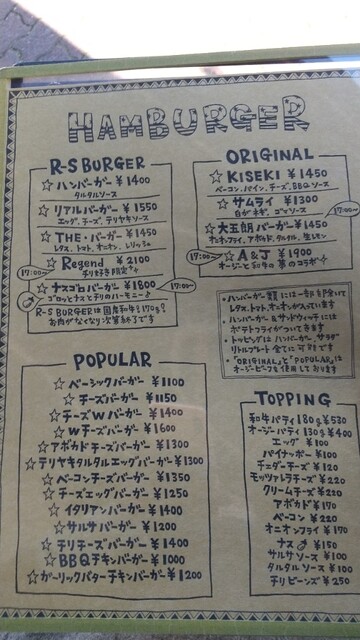 HAMBURGER
R-S BURGER
☆ ハンバーガー ¥1400
タルタルソース
☆ リアルバーガー ¥1550
エッグ、チーズ、テリヤキソース
☆ THE・バーガー ¥1450
レタス、トマト、オニオン、レリッシュ
17:00〜
☆ Regend ¥2100
17:00〜
☆ ナスゴロバーガー ¥1800
ゴロッとナスとデリのハーモニー♪
R-S BURGERは国産和牛170g!
お肉がなくなり次第終了です
ORIGINAL
☆ KISEKI ¥1450
ベーコン、パイン、チーズ、BBQソース
☆ サムライ ¥1300
白ガネギ、ゴマソース
17:00〜
☆ 大五朗バーガー ¥1450
オニオンフライ、アボカド、タルタル、生レモン
17:00〜
☆ A&J ¥1900
オージーと和牛の夢のコラボ☆
・ハンバーガー類には一部を除いて
レタス、トマト、オニオンが入っています
・ハンバーガー&サンドウィッチには
ポテトフライがついてきます
・トッピングはハンバーガー、サラダ
リトルプレート全てに可能です
・"ORIGINAL"と"POPULAR"は
オージービーフを使用しております
POPULAR
☆ ベーシックバーガー ¥1100
☆ チーズバーガー ¥1150
☆ チーズWバーガー ¥1400
☆ Wチーズバーガー ¥1600
☆ アボカドチーズバーガー ¥1300
☆ テリヤキタルタルエッグバーガー ¥1300
☆ ベーコンチーズバーガー ¥1350
☆ チーズエッグバーガー ¥1250
☆ イタリアンバーガー ¥1400
☆ サルサバーガー ¥1200
☆ チリチーズバーガー ¥1400
☆ BBQチキンバーガー ¥1000
☆ ガーリックバターチキンバーガー ¥1200
TOPPING
和牛パティ180g ¥530
オージーパティ130g ¥400
エッグ ¥100
パイナッポー ¥100
チェダーチーズ ¥120
モッツァレラチーズ ¥220
クリームチーズ ¥220
アボカド ¥170
ベーコン ¥220
オニオンフライ ¥170
ナス ¥150
サルサソース ¥100
タルタルソース ¥100
チリビーンズ ¥250